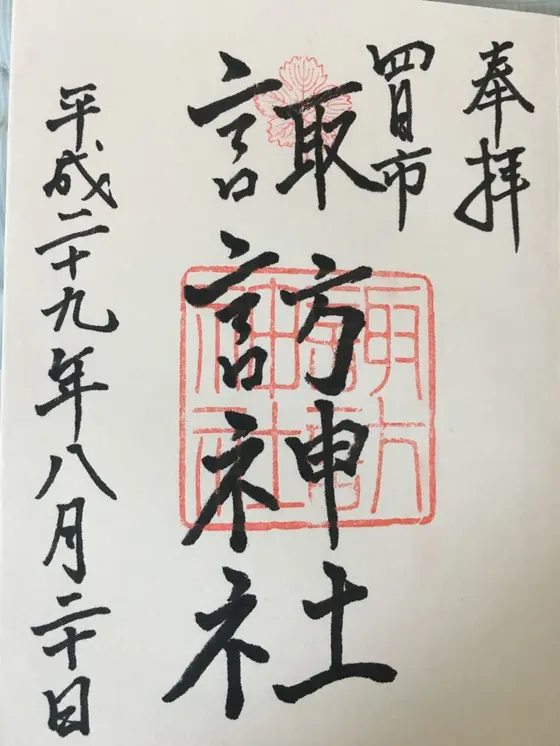 奉拝
四日市
諏訪神社
諏訪
神社
平成二十九年八月二十日